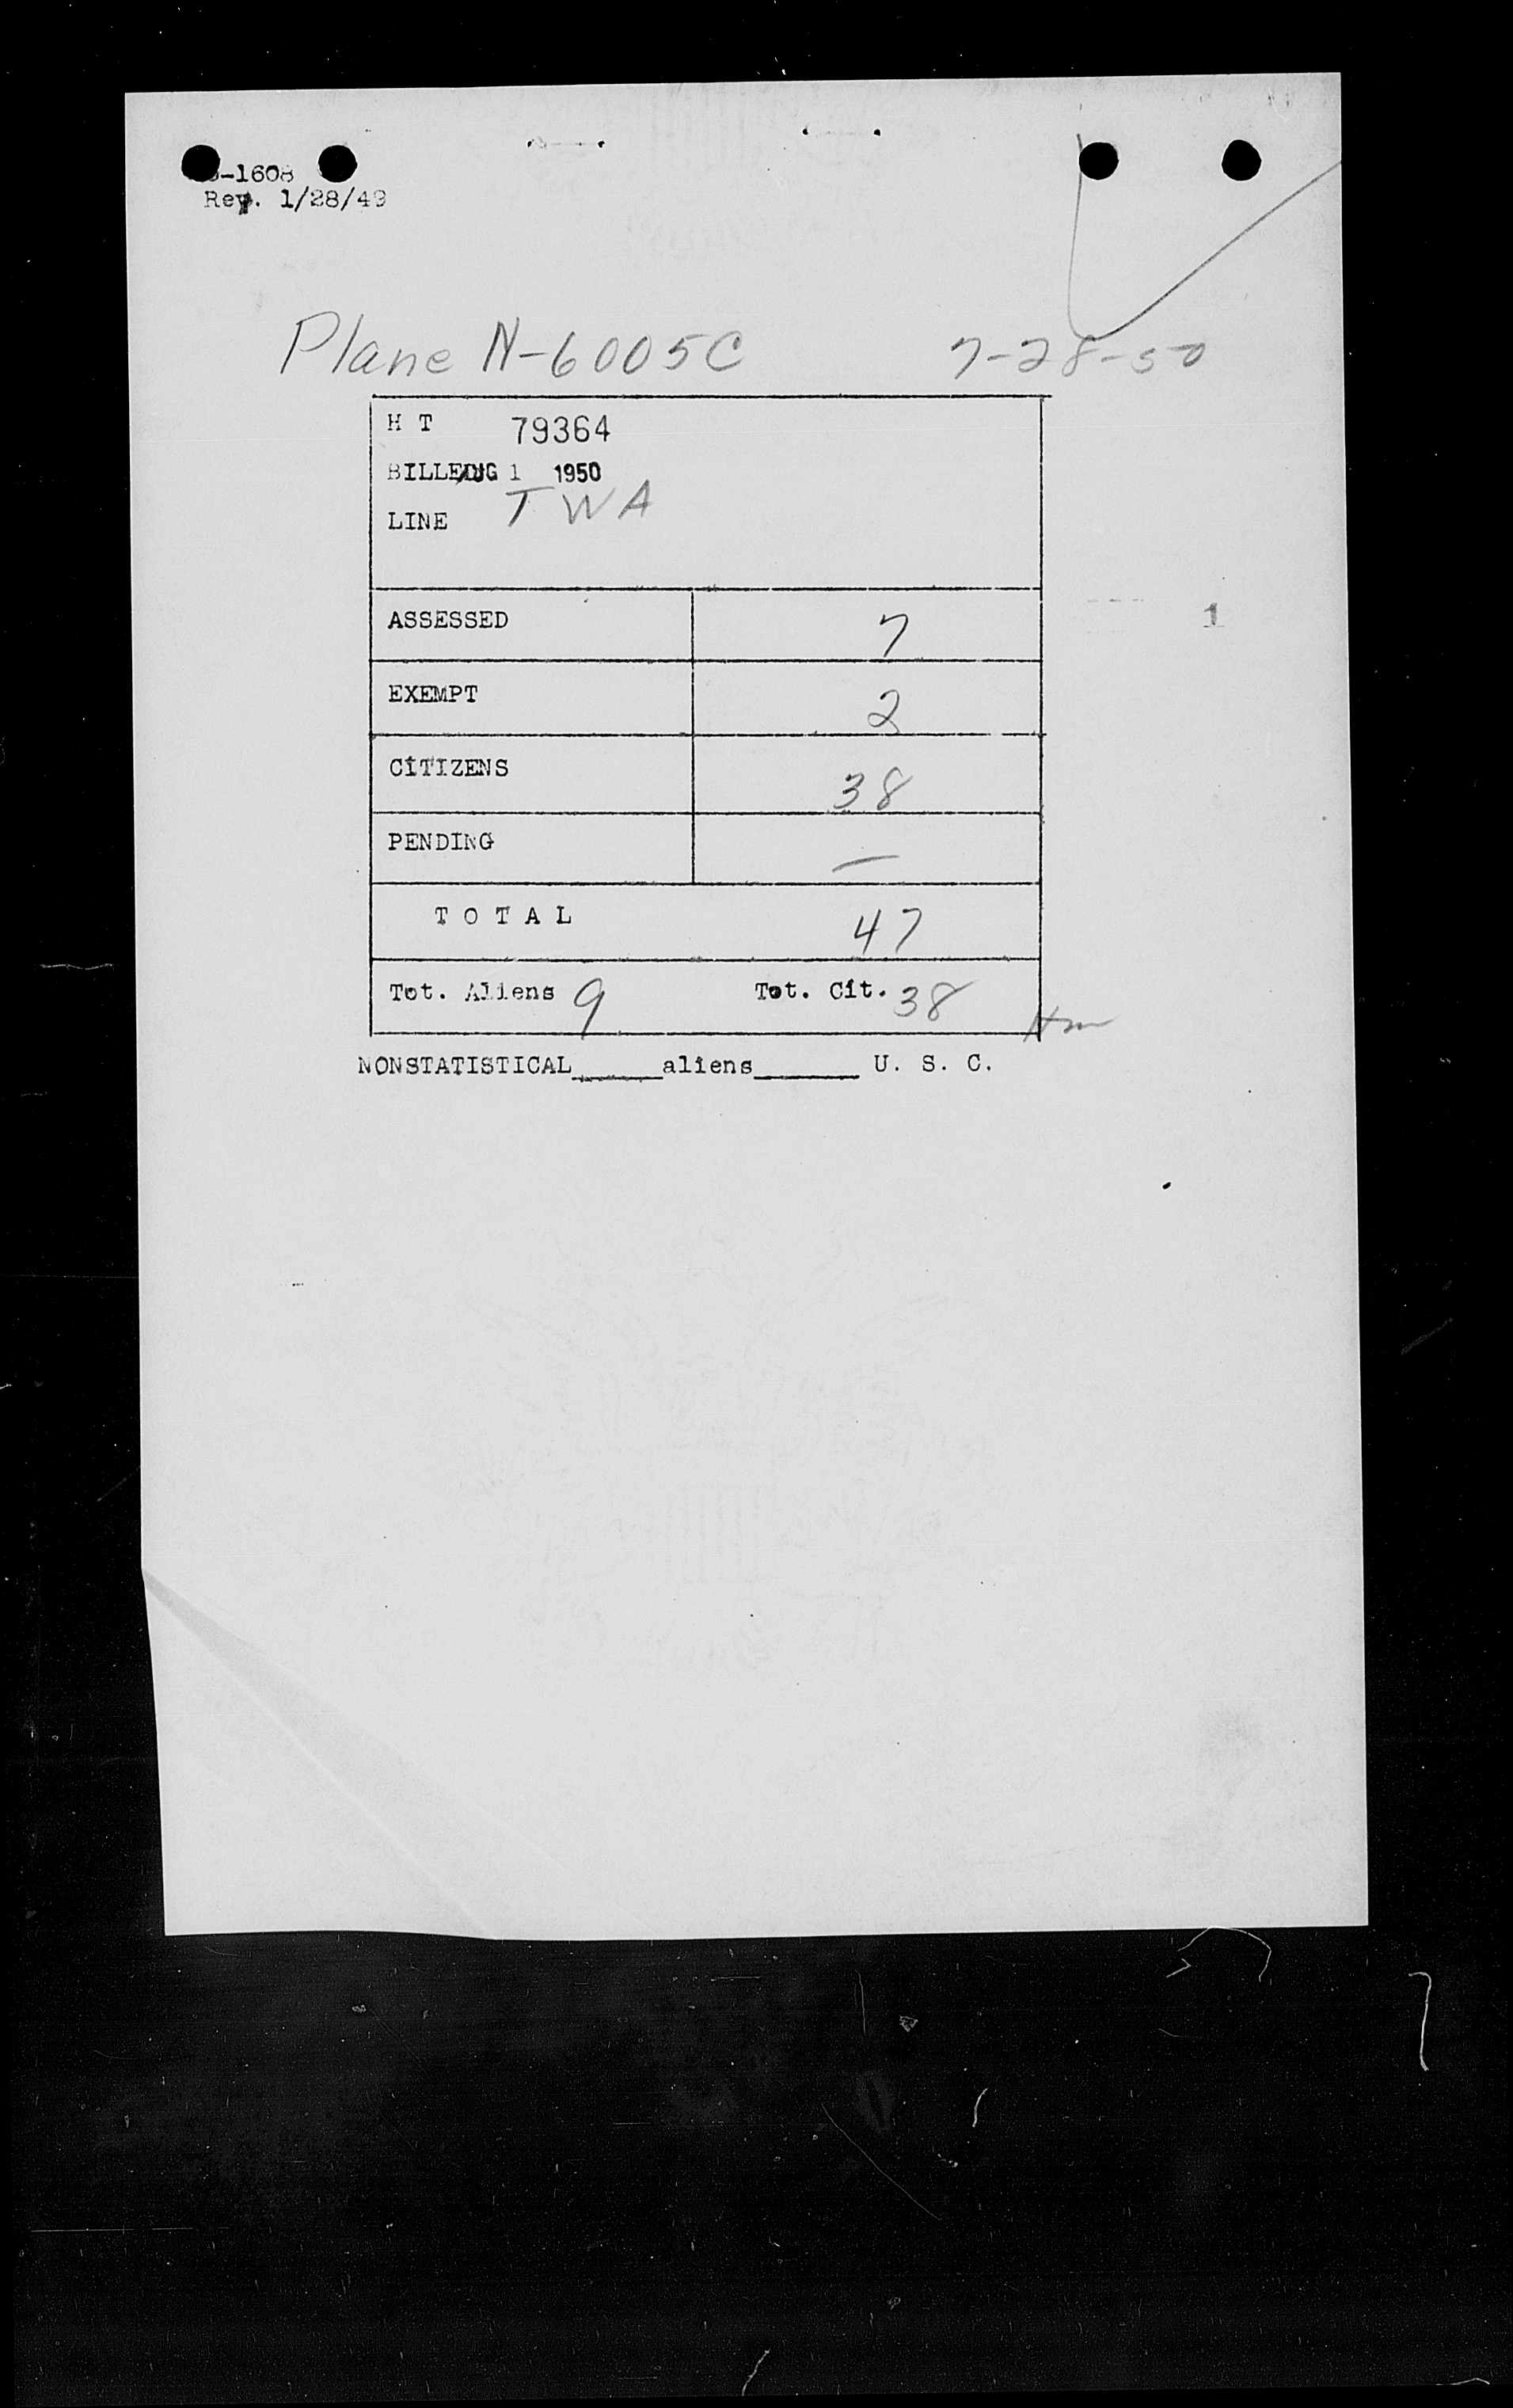 -1608
Rev. 1/28/49
Plane N-6005C 7-28-50
H T 79364
BILLED AUG 1 1950
LINE TWA
ASSESSED 7
1
EXEMPT 2
CITIZENS 38
PENDING —
TOTAL 47
Tot. Aliens 9 Tot. Cit. 38
NONSTATISTICAL______aliens_______ U. S. C.